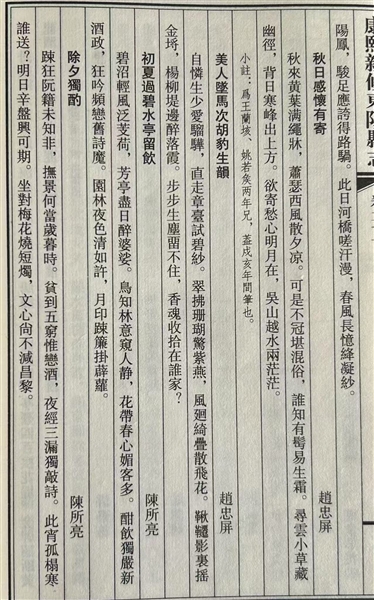 康熙新修東陽縣志
陽鳳,駿足應誇得路騧。此日河橋嗟汗漫,春風長憶絳凝紗。
秋日感懷有寄 趙忠屏
秋來黄葉滿繩牀,蕭瑟西風散夕凉。可是不冠堪混俗,誰知有髩易生霜。尋雲小草藏
幽徑,背日寒峰出上方。欲寄愁心明月在,吳山越水兩茫茫。
小註:爲王蘭坡、姚若矦两年兄,葢戌亥年間筆也。
美人墜馬次胡豹生韻 趙忠屏
自憐生少愛騮驊,直走章臺試碧紗。翠拂珊瑚驚紫燕,風廻綺疊散飛花。鞦韆影裏摇
金埒,楊柳堤邊醉落霞。步步生塵畱不住,香魂收拾在誰家?
初夏過碧水亭留飲 陳所亮
碧沼輕風泛芰荷,芳亭盡日醉婆娑。鳥知林意窺人静,花帶春心媚客多。酣飲獨嚴新
酒政,狂吟頻戀舊詩魔。園林夜色清如許,月印踈簾掛薜蘿。
除夕獨酌 陳所亮
踈狂阮籍未知非,撫景何當歲暮時。貧到五窮惟戀酒,夜經三漏獨敲詩。此宵孤榻寒
誰送?明日辛盤興可期。坐對梅花燒短燭,文心尙不減昌黎。